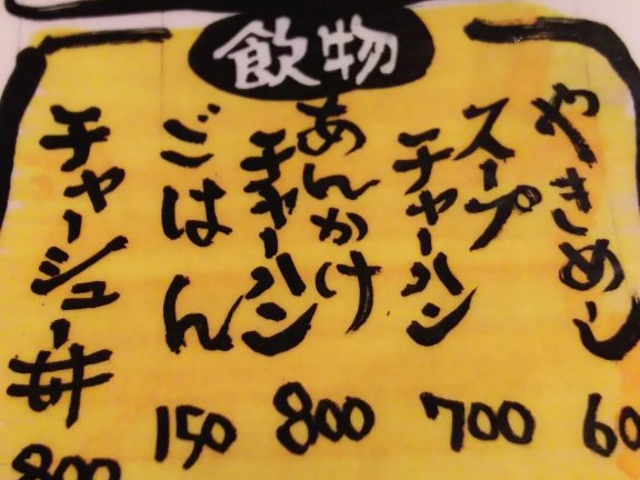 飲物
やきめし
60
スープ
チャーハン
700
あんかけ
チャーハン
800
ごはん
150
チャーシュー丼
800